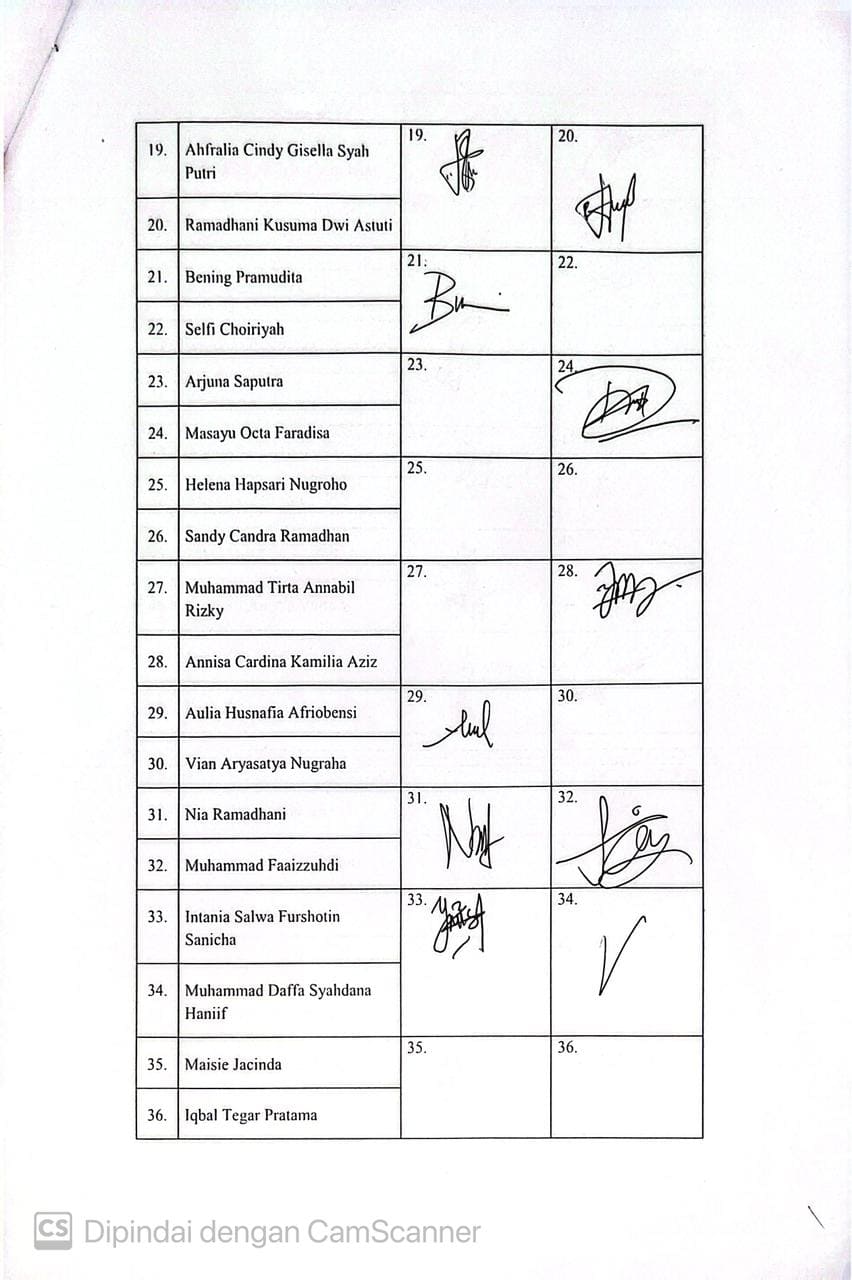 19. Ahfralia Cindy Gisella Syah
Putri
19.
20.
20. Ramadhani Kusuma Dwi Astuti
21. Bening Pramudita
21.
22.
22. Selfi Choiriyah
23. Arjuna Saputra
23.
24.
24. Masayu Octa Faradisa
25. Helena Hapsari Nugroho
25.
26.
26. Sandy Candra Ramadhan
27. Muhammad Tirta Annabil
Rizky
27.
28.
28. Annisa Cardina Kamilia Aziz
29. Aulia Husnafia Afriobensi
29.
30.
30. Vian Aryasatya Nugraha
31. Nia Ramadhani
31.
32.
32. Muhammad Faaizzuhdi
33. Intania Salwa Furshotin
Sanicha
33.
34.
34. Muhammad Daffa Syahdana
Haniif
35. Maisie Jacinda
35.
36.
36. Iqbal Tegar Pratama
CS Dipindai dengan CamScanner